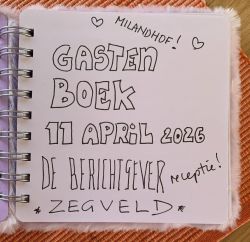 MILANDHOF!
GASTEN
BOEK
11 APRIL 2026
DE BERICHTGEVER receptie!
* ZEGVELD *